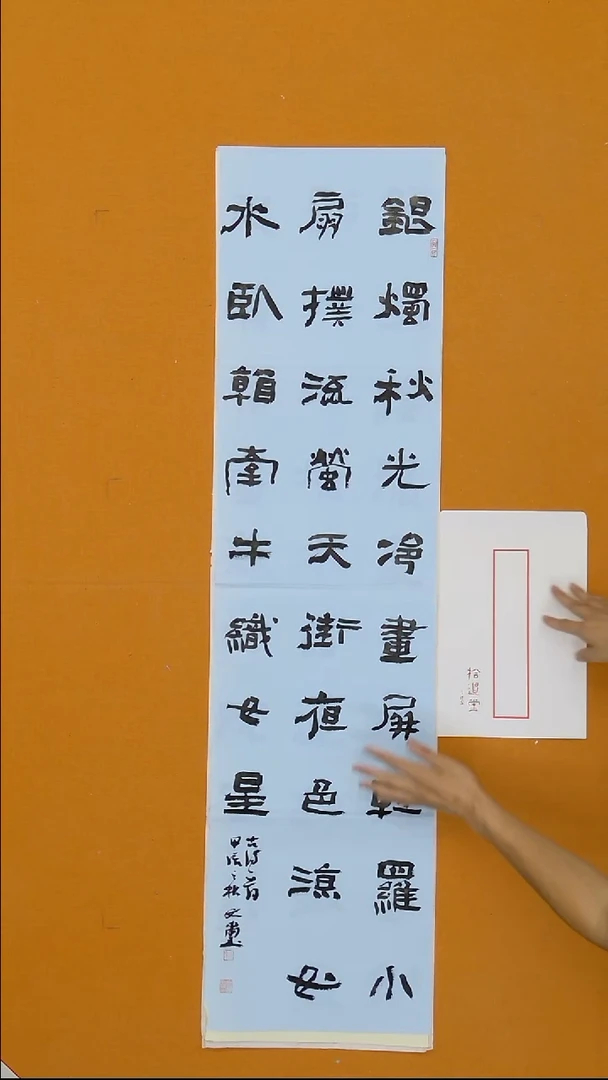 銀燭秋光冷畫屏輕羅小
扇撲流螢天街夜色涼如
水臥看牽牛織女星
古詩一首
甲辰之秋